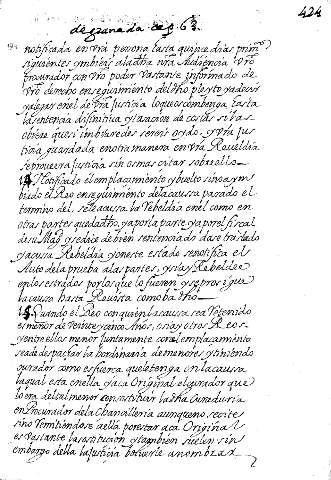 de granada de 63
424
notificada en vra persona hasta quince dias primos
siguientes ymbieis a la dha nra Audiencia vro
Procurador con vro poder bastante informado de
vro derecho en seguimiento del dho pleyto y a decir
y alegar en el de vra Justicia lo que os combenga hasta
la sentencia difinitiva y tasacion de costas si las
obiere que si imbiaredes sereis oydo, y vra jus
ticia guardada en otra manera en vra Reveldia
se probeera justicia sin os mas citar sobre ello.
Notificado el emplazamiento y buelto sino a ym
biado el Reo en seguimiento de la caussa pasado el
termino del se le acussa la Rebeldia en el como en
otras partes queda dho, ya por la parte ya por el fiscal
de su Magd y se dice de bien sentenciado da se traslado
y acusa Rebeldia y en este estado se notifica el
Auto de la prueba a las partes, y si ay Rebeldes
en los estrados por los que lo fueren y se prosigue
la caussa hasta Revista como ba dho
Quando el Reo con quien la caussa se a de
es menor de veinte y cinco Años, o si ay otros Reos
y entre ellos menor juntamente con el emplazamiento
se a de despachar la hordinaria de menores y tiniendo
curador como es fuerza que le tenga en la caussa
la qual esta en ella ya ca Original el curador que
lo era del tal menor sin sostituir la dha Curaduria
en Procurador de la Chancilleria aunque no se cite
sino Remitiendose a ella por estar aca Original
es bastante la sostitucion y tambien suelen sin
embargo de ella la justicia bolverle a nombrar